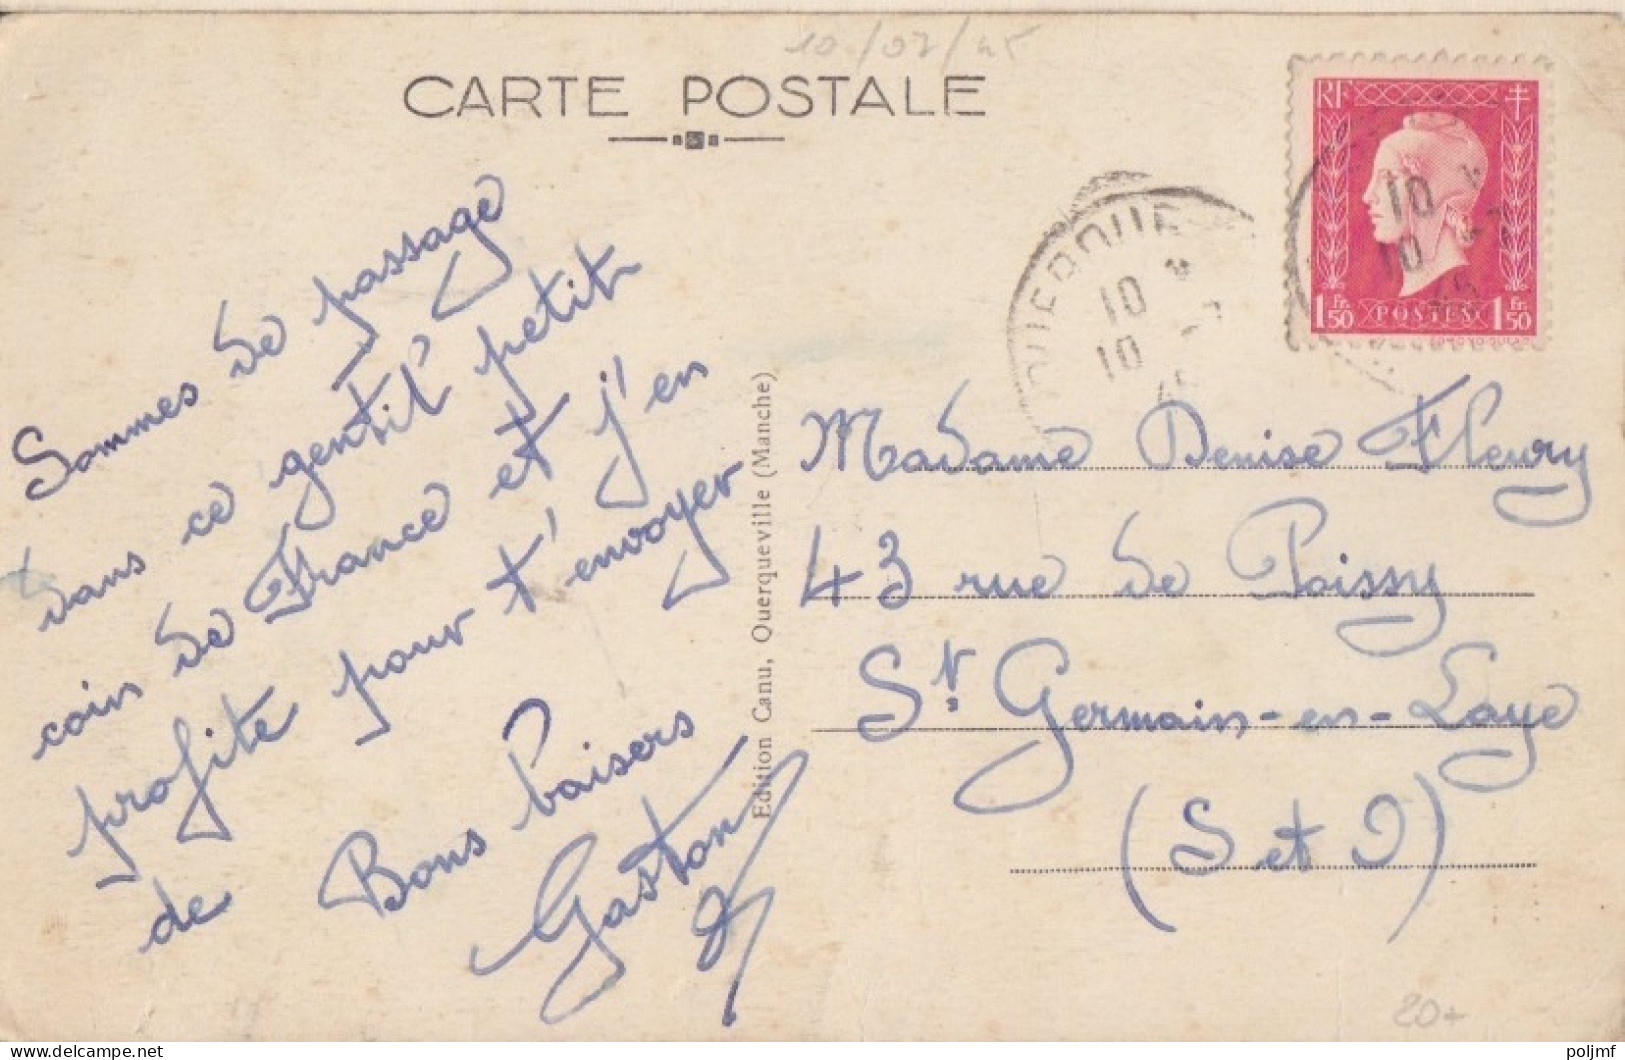 10/07/45
CARTE POSTALE
RF
10
10
1 Fr. 50 POSTES 1 Fr. 50
10
10
45
Sommes de passage
dans ce gentil petit
coin de France et j'en
profite pour t'envoyer
de Bons baisers
Gaston
Edition Canu, Querqueville (Manche)
Madame Denise Fleury
43 rue de Poissy
St. Germain-en-Laye
(S et O)
20+
poljmf
© delcampe.net